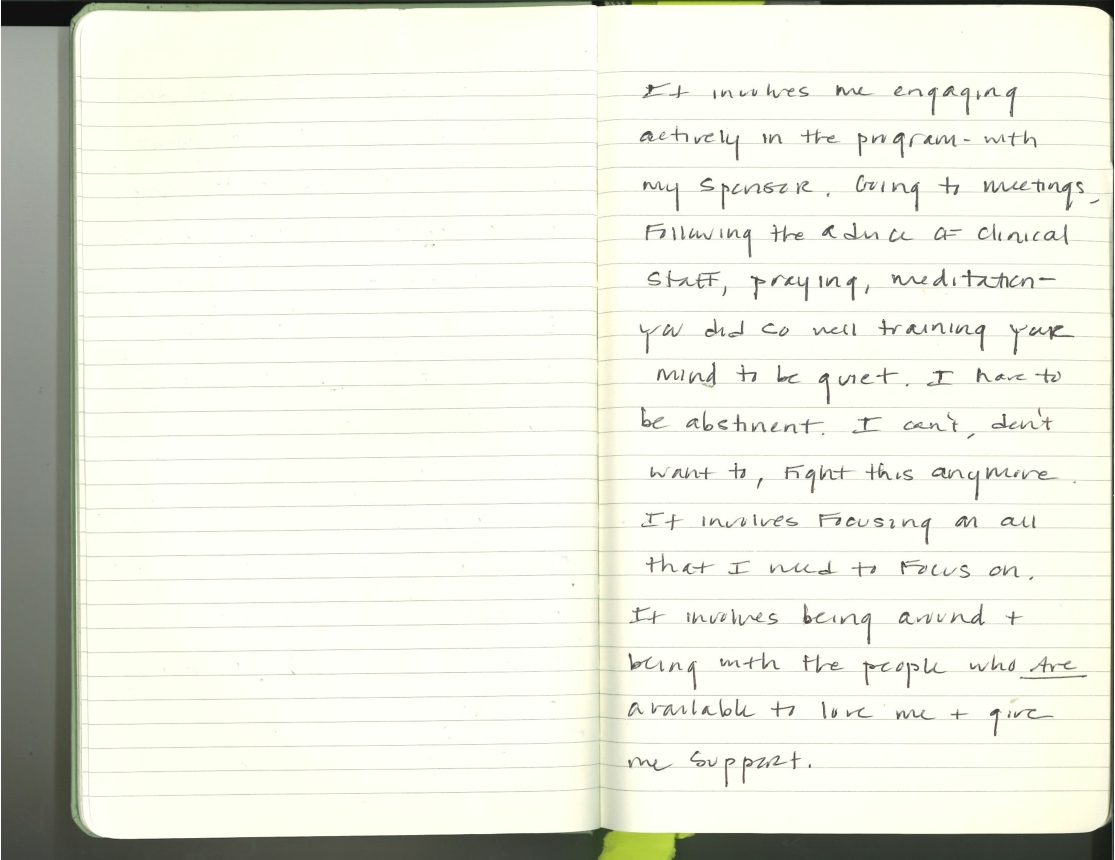 It involves me engaging
actively in the program - with
my sponsor. Going to meetings,
Following the advice of clinical
staff, praying, meditation -
you did so well training your
mind to be quiet. I have to
be abstinent. I can't, don't
want to, fight this anymore.
It involves focusing on all
that I need to focus on.
It involves being around +
being with the people who Are
available to love me + give
me support.